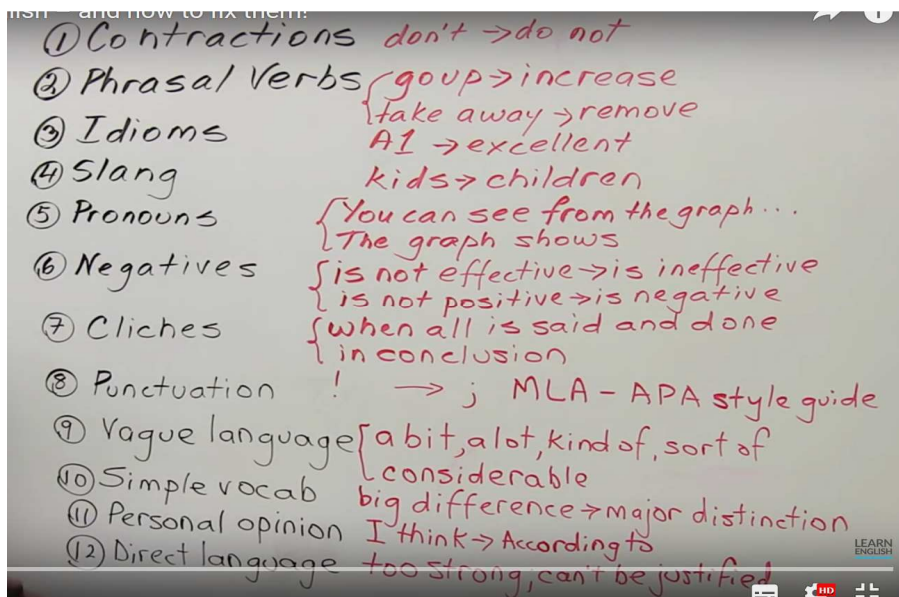 and how to fix them!
① Contractions don't → do not
② Phrasal Verbs go up → increase
take away → remove
③ Idioms A1 → excellent
④ Slang kids → children
⑤ Pronouns You can see from the graph...
The graph shows
⑥ Negatives is not effective → is ineffective
is not positive → is negative
⑦ Cliches when all is said and done
in conclusion
⑧ Punctuation ! → ; MLA - APA style guide
⑨ Vague language a bit, a lot, kind of, sort of
considerable
⑩ Simple vocab big difference → major distinction
⑪ Personal opinion I think → According to
⑫ Direct language too strong, can't be justified
LEARN
ENGLISH
HD